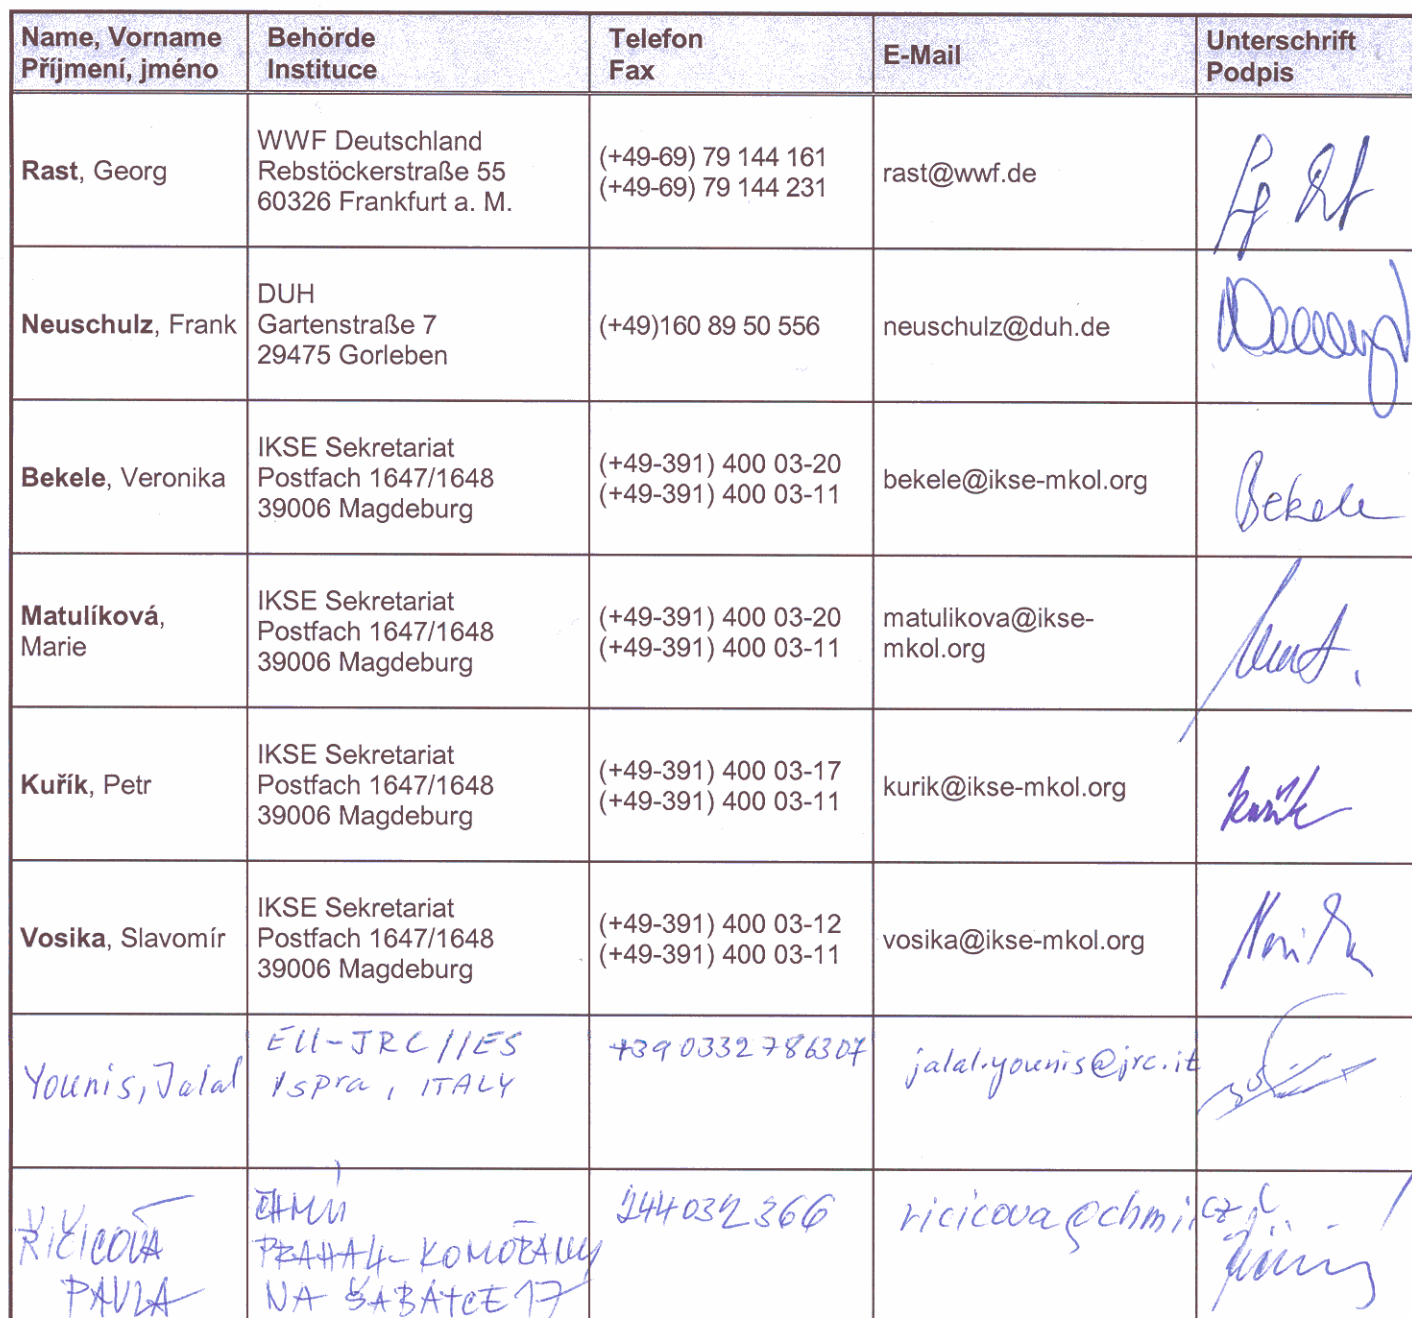 Name, Vorname
Příjmení, jméno
Behörde
Instituce
Telefon
Fax
E-Mail
Unterschrift
Podpis
Rast, Georg
WWF Deutschland
Rebstöckerstraße 55
60326 Frankfurt a. M.
(+49-69) 79 144 161
(+49-69) 79 144 231
rast@wwf.de
Neuschulz, Frank
DUH
Gartenstraße 7
29475 Gorleben
(+49)160 89 50 556
neuschulz@duh.de
Bekele, Veronika
IKSE Sekretariat
Postfach 1647/1648
39006 Magdeburg
(+49-391) 400 03-20
(+49-391) 400 03-11
bekele@ikse-mkol.org
Bekele
Matulíková,
Marie
IKSE Sekretariat
Postfach 1647/1648
39006 Magdeburg
(+49-391) 400 03-20
(+49-391) 400 03-11
matulikova@ikse-
mkol.org
Kuřík, Petr
IKSE Sekretariat
Postfach 1647/1648
39006 Magdeburg
(+49-391) 400 03-17
(+49-391) 400 03-11
kurik@ikse-mkol.org
Kuřík
Vosika, Slavomír
IKSE Sekretariat
Postfach 1647/1648
39006 Magdeburg
(+49-391) 400 03-12
(+49-391) 400 03-11
vosika@ikse-mkol.org
Younis, Jalal
EU-JRC/IES
Ispra, ITALY
+39 0332 786307
jalal.younis@jrc.it
ŘIČICOVÁ
PAVLA
ČHMÚ
PRAHA 4 - KOMOŘANY
NA ŠABATCE 17
244032366
ricicova@chmi.cz